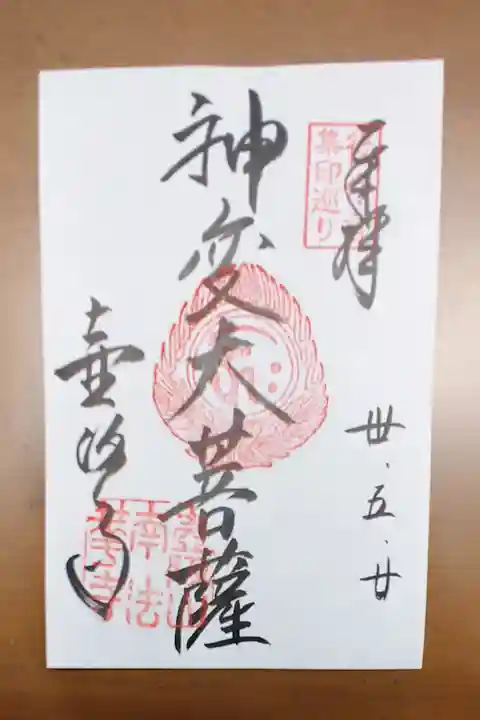 奉拝
集印巡り
丗.五.廿
神変大菩薩
壷阪寺
南法
華寺